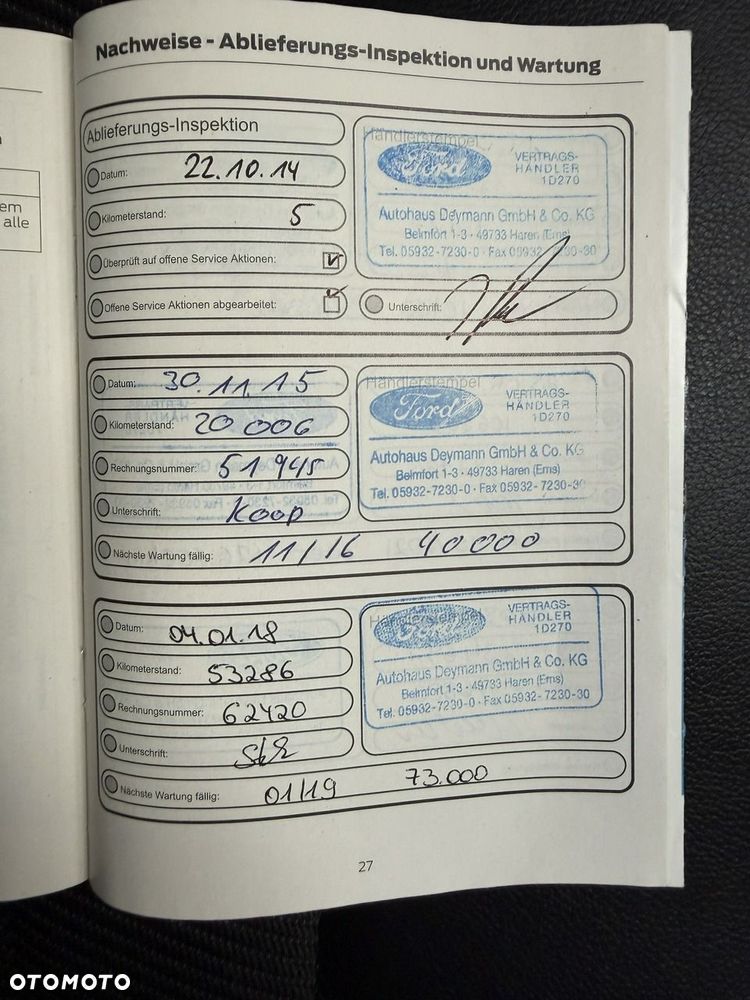 em
alle
Nachweise - Ablieferungs-Inspektion und Wartung
Ablieferungs-Inspektion
Datum: 22.10.14
Kilometerstand: 5
Überprüft auf offene Service Aktionen:
Offene Service Aktionen abgearbeitet:
Händlerstempel
Ford
VERTRAGS-
HÄNDLER
1D270
Autohaus Deymann GmbH & Co. KG
Belmfort 1-3 · 49733 Haren (Ems)
Tel. 05932-7230-0 · Fax 05932-7230-30
Unterschrift:
Datum: 30.11.15
Kilometerstand: 20006
Rechnungsnummer: 51945
Unterschrift: Koop
Nächste Wartung fällig: 11/16 40000
Händlerstempel
Ford
VERTRAGS-
HÄNDLER
1D270
Autohaus Deymann GmbH & Co. KG
Belmfort 1-3 · 49733 Haren (Ems)
Tel. 05932-7230-0 · Fax 05932-7230-3
Datum: 04.01.18
Kilometerstand: 53286
Rechnungsnummer: 62420
Unterschrift:
Nächste Wartung fällig: 01/19 73.000
Händlerstempel
Ford
VERTRAGS-
HÄNDLER
1D270
Autohaus Deymann GmbH & Co. KG
Belmfort 1-3 · 49733 Haren (Ems)
Tel. 05932-7230-0 · Fax 05932-7230-30
27
OTOMOTO